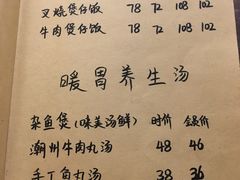 叉烧煲仔饭 78 72 108 102
牛肉煲仔饭 78 72 108 102
暖胃养生汤
杂鱼煲(味美汤鲜) 时价 会员价
潮州牛肉丸汤 48 46
手工鱼丸汤 38 36